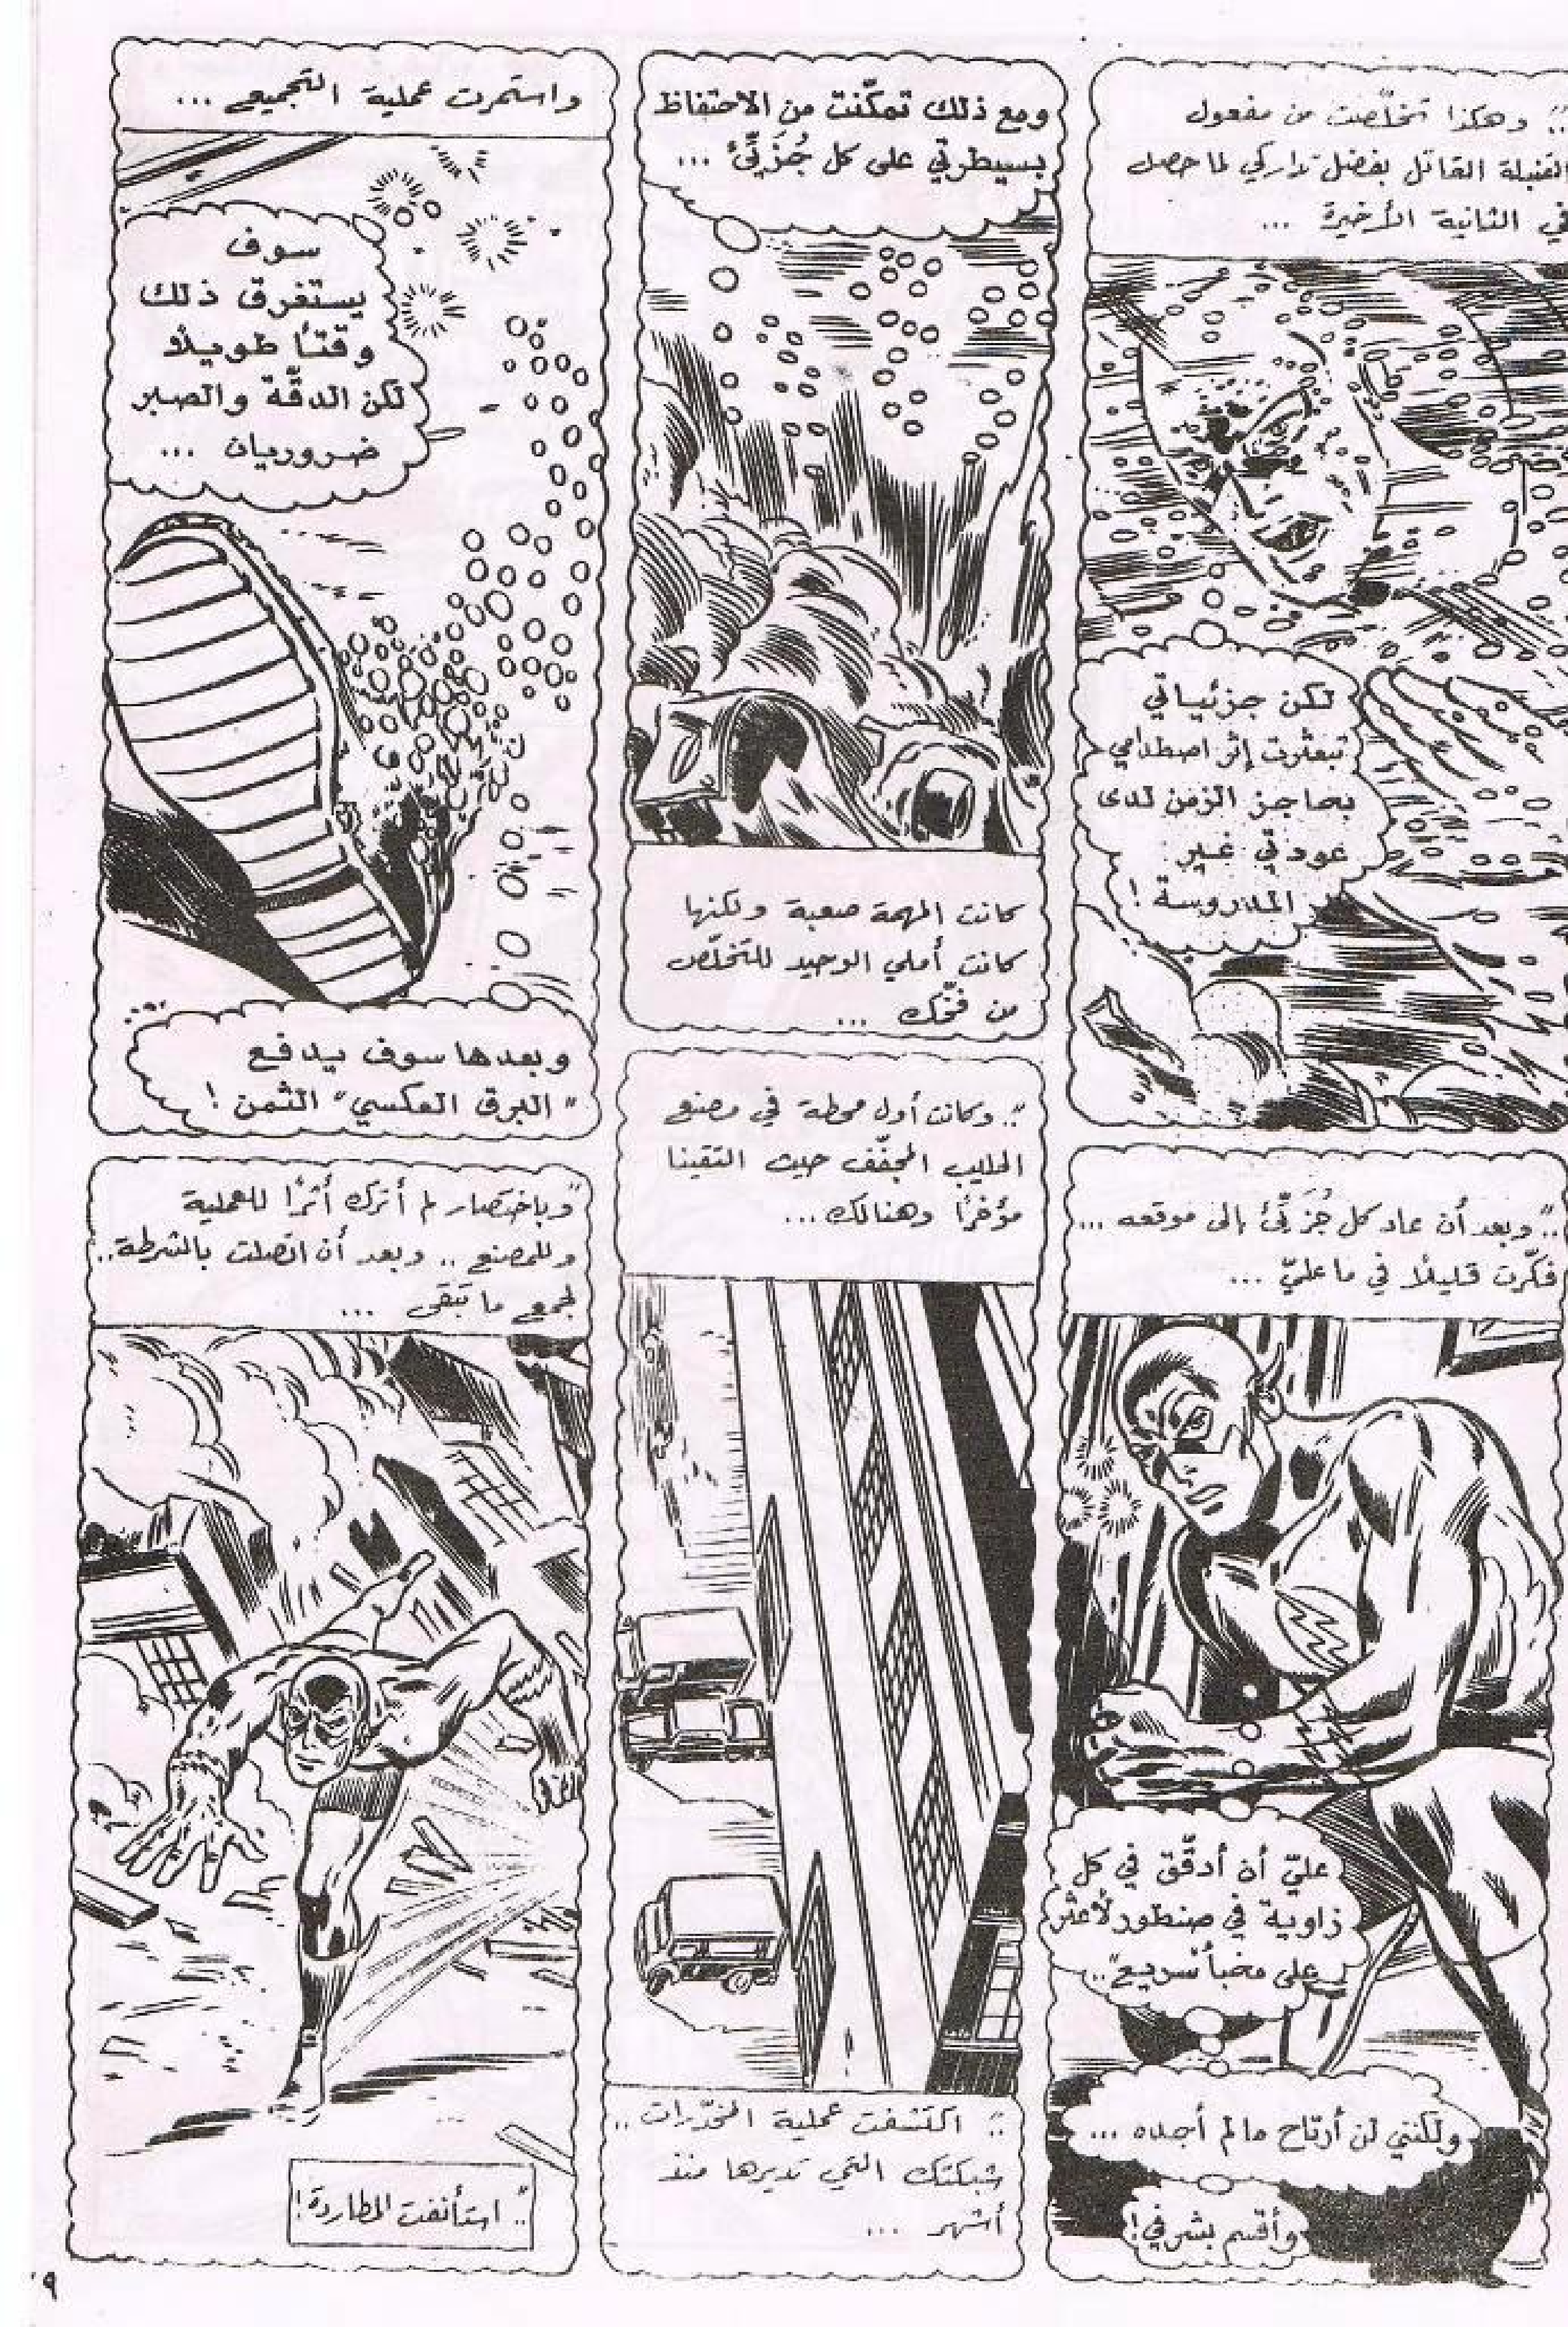 .. وهكذا تخلّصت من مفعول
القنبلة القاتل بفضل تداركي لما حصل
في الثانية الأخيرة ...
لكن جزئياتي
تبعثرت إثر اصطدامي
بحاجز الزمن لدى
عودتي غير
المدروسة !
ومع ذلك تمكّنت من الاحتفاظ
بسيطرتي على كل جُزَيِّئ ...
كانت المهمة صعبة ولكنها
كانت أملي الوحيد للتخلّص
من فخّك ...
واستمرت عملية التجميع ...
سوف
يستغرق ذلك
وقتاً طويلاً
لكن الدقّة والصبر
ضروريان ...
وبعدها سوف يدفع
"البرق العكسي" الثمن !
".. وبعد أن عاد كل جُزَيِّئ إلى موقعه ...
فكّرت قليلاً في ما عليّ ...
عليّ أن أدقّق في كل
زاوية في صنطور لأعثر
على مخبأ سريع" ..
ولكنني لن أرتاح ما لم أجده ...
وأقسم بشرفي !
".. وكانت أول محطة في مصنع
الحليب المجفّف حيث التقينا
مؤخرًا وهنالك ...
".. اكتشفت عملية المخدّرات ..
شبكتك التي تديرها منذ
أشهر ...
"وباختصار لم أترك أثرًا للعملية
وللمصنع .. وبعد أن اتصلت بالشرطة ..
لجمع ما تبقى ...
".. استأنفت المطاردة !
٩